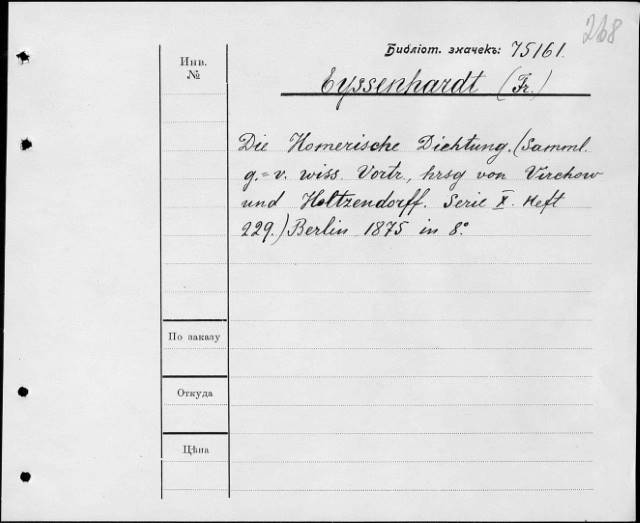 268
Библіот. значекъ: 75161.
Инв.
№
Eyssenhardt (Fr.)
Die Homerische Dichtung. (Samml.
g.=v. wiss. Vortr., hrsg von Virchow
und Holtzendorff. Serie X. Heft
229.) Berlin 1875 in 8°
По заказу
Откуда
Цѣна